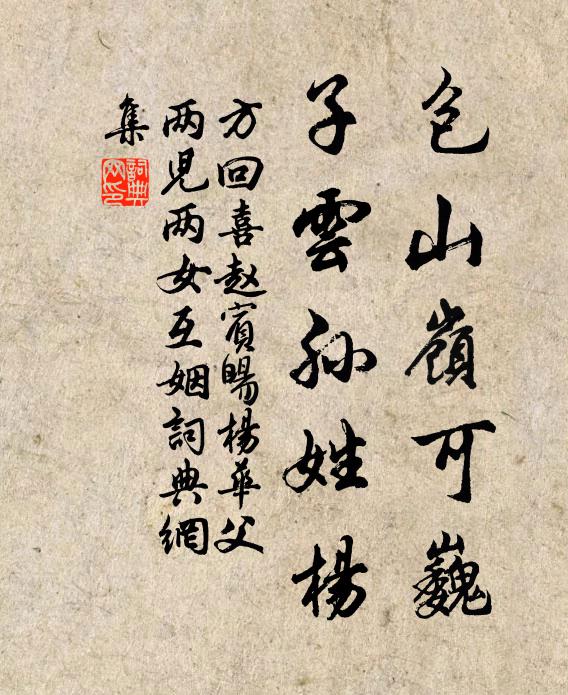 包山嶺可巍
子雲孫姓楊
方回喜赵賓暘楊華父
两児两女互姻詞典網
集
詞典網印